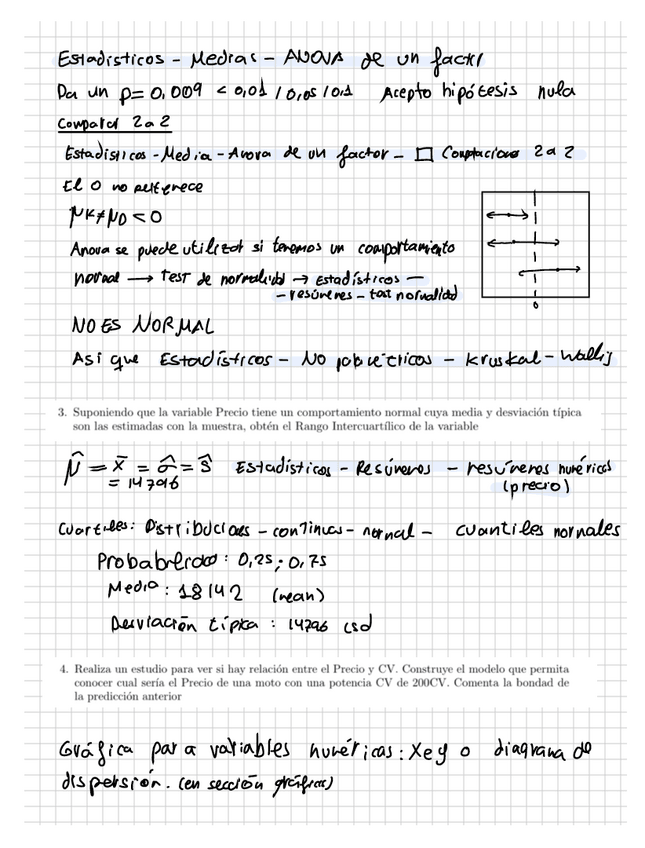 Estadísticos - Medias - ANOVA de un factor
Da un p= 0,009 < 0,01 / 0,05 / 0,1 Acepto hipótesis nula
Comparar 2 a 2
Estadísticos - Media - Anova de un factor - □ Comparaciones 2 a 2
El 0 no pertenece
μK≠μD < 0
Anova se puede utilizar si tenemos un comportamiento
normal → test de normalidad → Estadísticos -
- resúmenes - test normalidad
0
NO ES NORMAL
Así que Estadísticos - No paramétricos - Kruskal - Wallis
3. Suponiendo que la variable Precio tiene un comportamiento normal cuya media y desviación típica
son las estimadas con la muestra, obtén el Rango Intercuartílico de la variable
μ̂ = x̄ = σ̂ = ŝ Estadísticos - Resúmenes - resúmenes numéricos
= 14796 (precio)
Cuartiles: Distribuciones - continuas - normal - cuantiles normales
Probabilidad: 0,25; 0,75
Media: 18142 (mean)
Desviación típica: 14796 (sd
4. Realiza un estudio para ver si hay relación entre el Precio y CV. Construye el modelo que permita
conocer cual sería el Precio de una moto con una potencia CV de 200CV. Comenta la bondad de
la predicción anterior
Gráfica para variables numéricas: X e y o diagrama de
dispersión. (en sección gráficas)